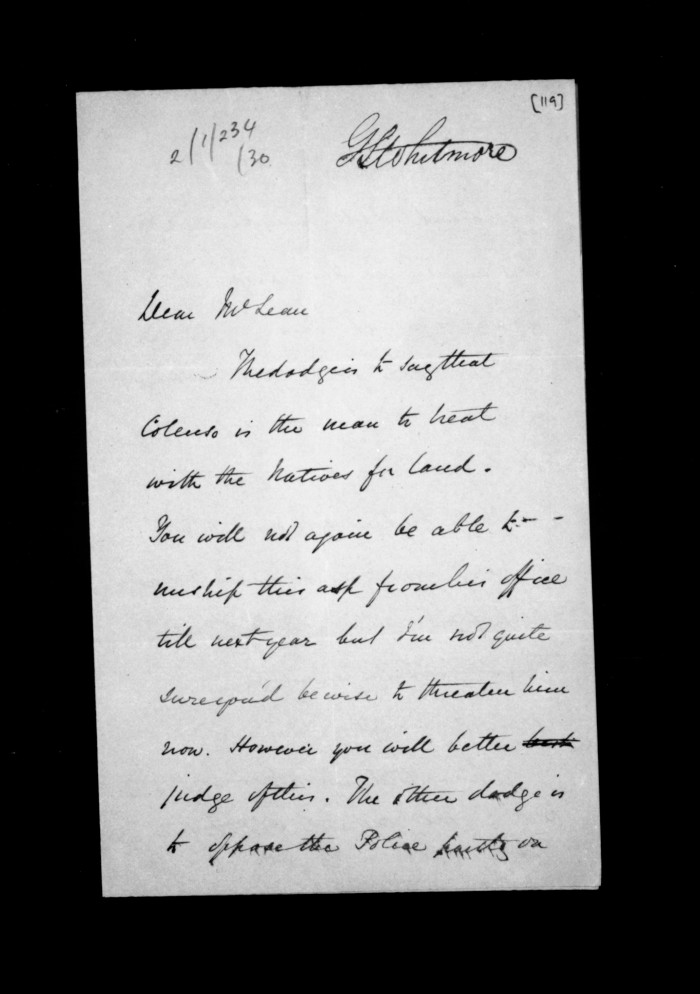 [119]
2/1/234
/30
GSWhitmore
Dear McLean
The dodge is to say that
Colenso is the man to treat
with the Natives for land.
You will not again be able to
unship this asp from his office
till next year but I'm not quite
sure you'd be wise to threaten him
now. However you will better
judge of this. The other dodge is
to oppose the Police partly on